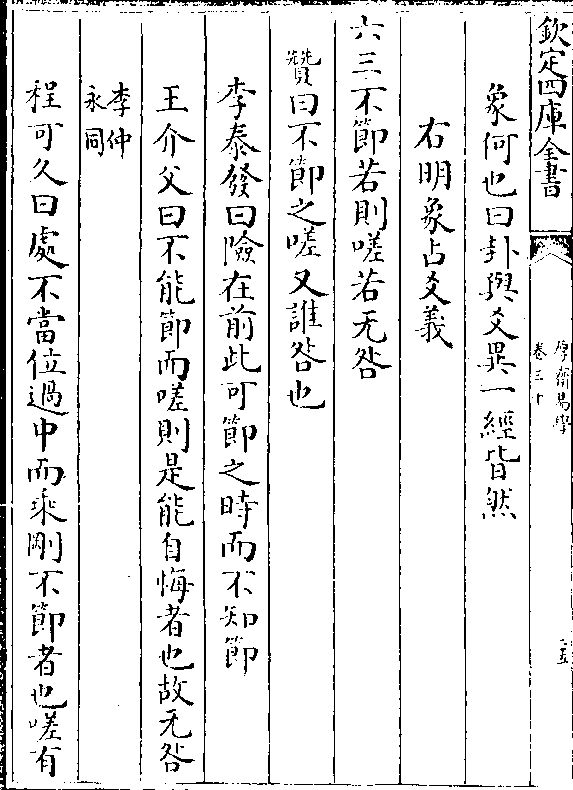 欽定四庫全書
厚齋易學
卷三十
五
象何也曰卦與爻異一經皆然
右明象占爻義
六三不節若則嗟若无咎
贊曰不節之嗟又誰咎也
李泰發曰險在前此可節之時而不知節
王介父曰不能節而嗟則是能自悔者也故无咎
李仲
永同
程可久曰處不當位過中而乘剛不節者也嗟有